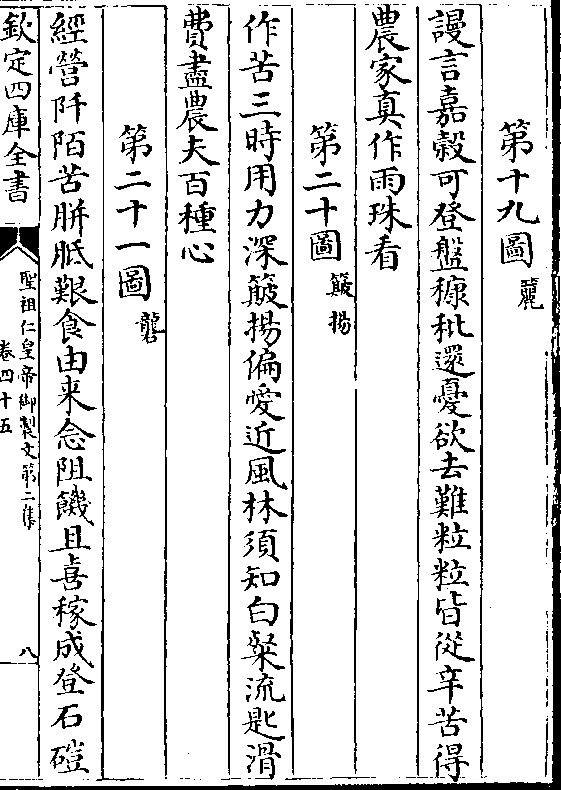 第十九圖簏
謾言嘉穀可登盤穅秕還憂欲去難粒粒皆從辛苦得
農家真作雨珠看
第二十圖簸揚
作苦三時用力深簸揚偏愛近風林須知白粲流匙滑
費盡農夫百種心
第二十一圖礱
經營阡陌苦胼胝艱食由来念阻饑且喜稼成登石磑
欽定四庫全書
聖祖仁皇帝御製文第二集
卷四十五
八